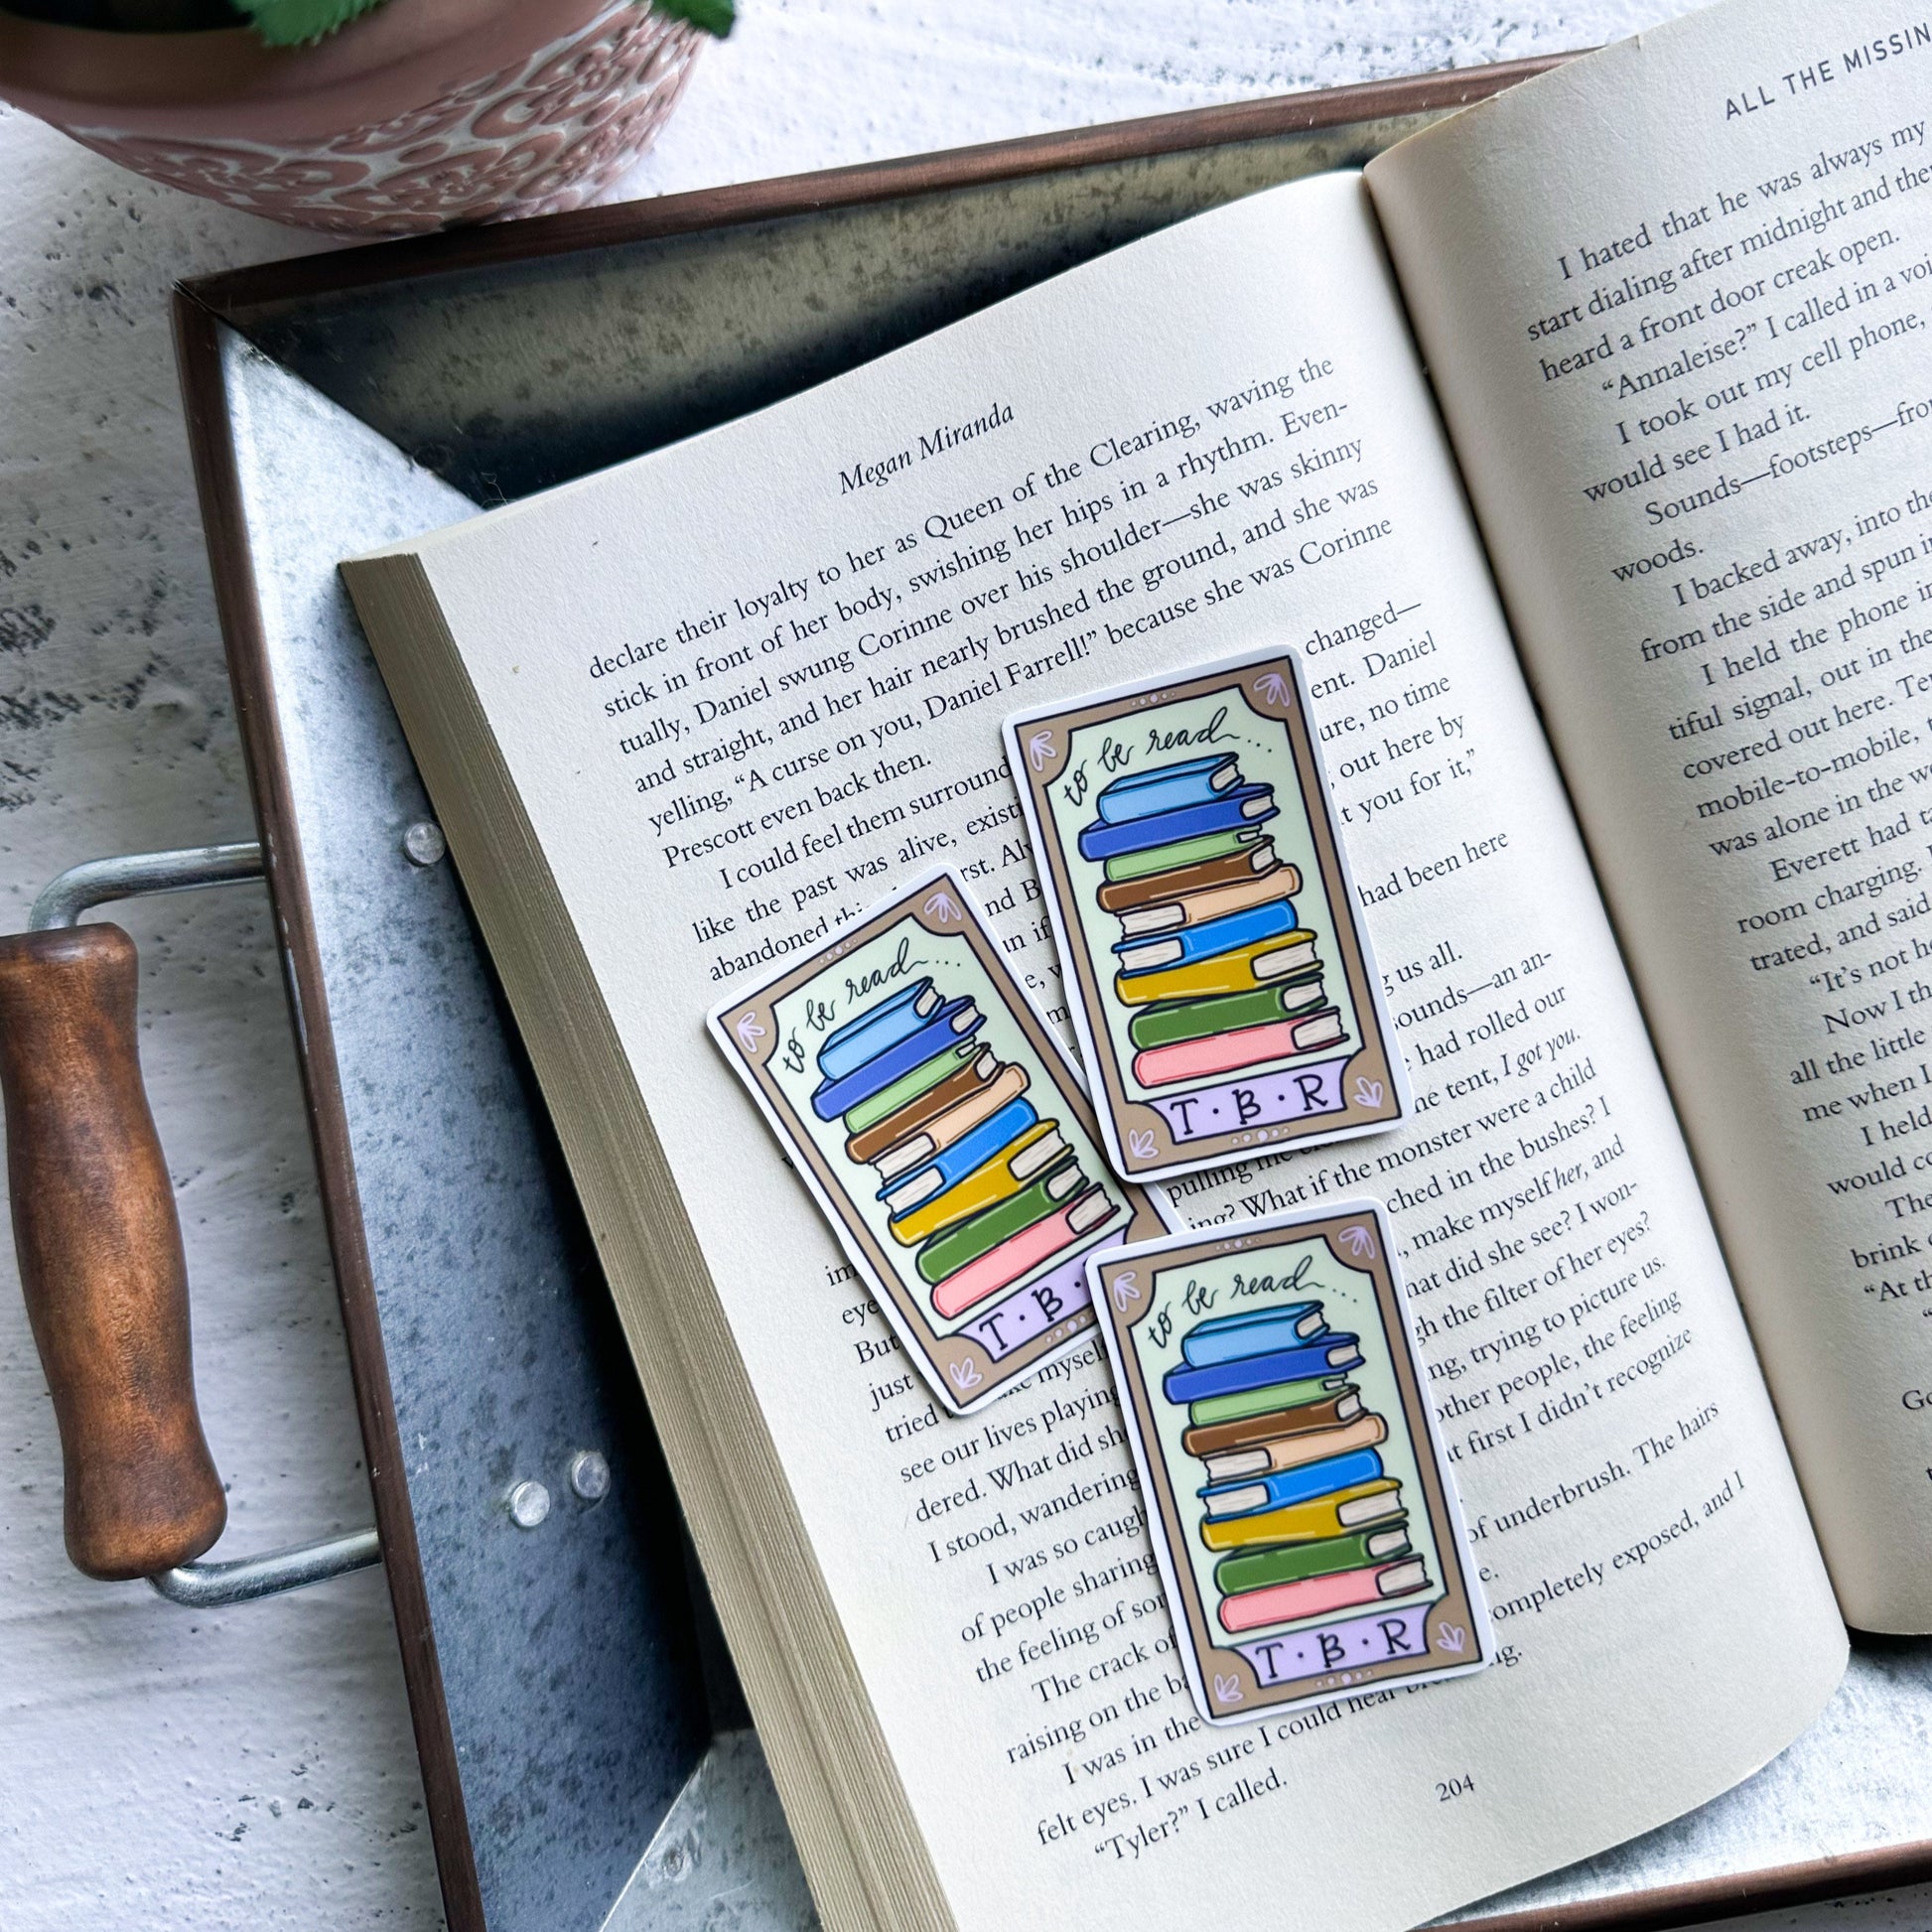 Megan Miranda
declare their loyalty to her as Queen of the Clearing, waving the
stick in front of her body, swishing her hips in a rhythm. Even-
tually, Daniel swung Corinne over his shoulder—she was skinny
and straight, and her hair nearly brushed the ground, and she was
yelling, “A curse on you, Daniel Farrell!” because she was Corinne
Prescott even back then.
I could feel them surround changed—
like the past was alive, existi ent. Daniel
abandoned rst. Al ure, no time
nd B out here by
un if t you for it,”
had been here
us all.
sounds—an an-
had rolled our
he tent, I got you.
pulling me were a child
ing? What if the monster
ched in the bushes? I
make myself her, and
hat did she see? I won-
gh the filter of her eyes?
im
eye
But
just
tried myself ng, trying to picture us.
see our lives playing other people, the feeling
dered. What did sh t first I didn’t recognize
I stood, wandering
I was so caugh of underbrush. The hairs
of people sharing e.
the feeling of so completely exposed, and I
The crack of
raising on the ba ng.
I was in the
felt eyes. I was sure I could hear
“Tyler?” I called.
204
to be read...
T·B·R
to be read...
T·B·
to be read....
T·B·R
ALL THE MISSIN
I hated that he was always my
start dialing after midnight and the
heard a front door creak open.
“Annaleise?” I called in a voi
I took out my cell phone,
would see I had it.
Sounds—footsteps—fro
woods.
I backed away, into th
from the side and spun i
I held the phone i
tiful signal, out in the
covered out here. Te
mobile-to-mobile,
was alone in the w
Everett had ta
room charging.
trated, and said
“It’s not h
Now I th
all the little
me when I
I held
would co
The
brink
“At th
Go